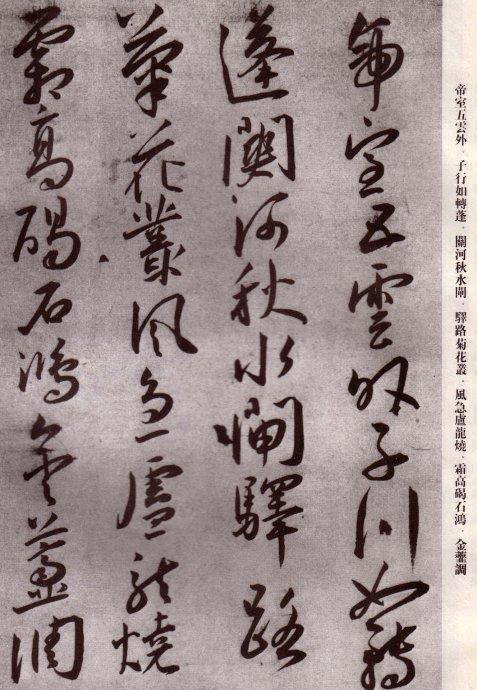 帝室五雲外．子行如轉蓬．關河秋水闊．驛路菊花叢．風急盧龍燒．霜高碣石鴻．金虀調
帝室五雲外子行如轉
蓬關河秋水闊驛路
菊花叢風急盧龍燒
霜高碣石鴻金虀調